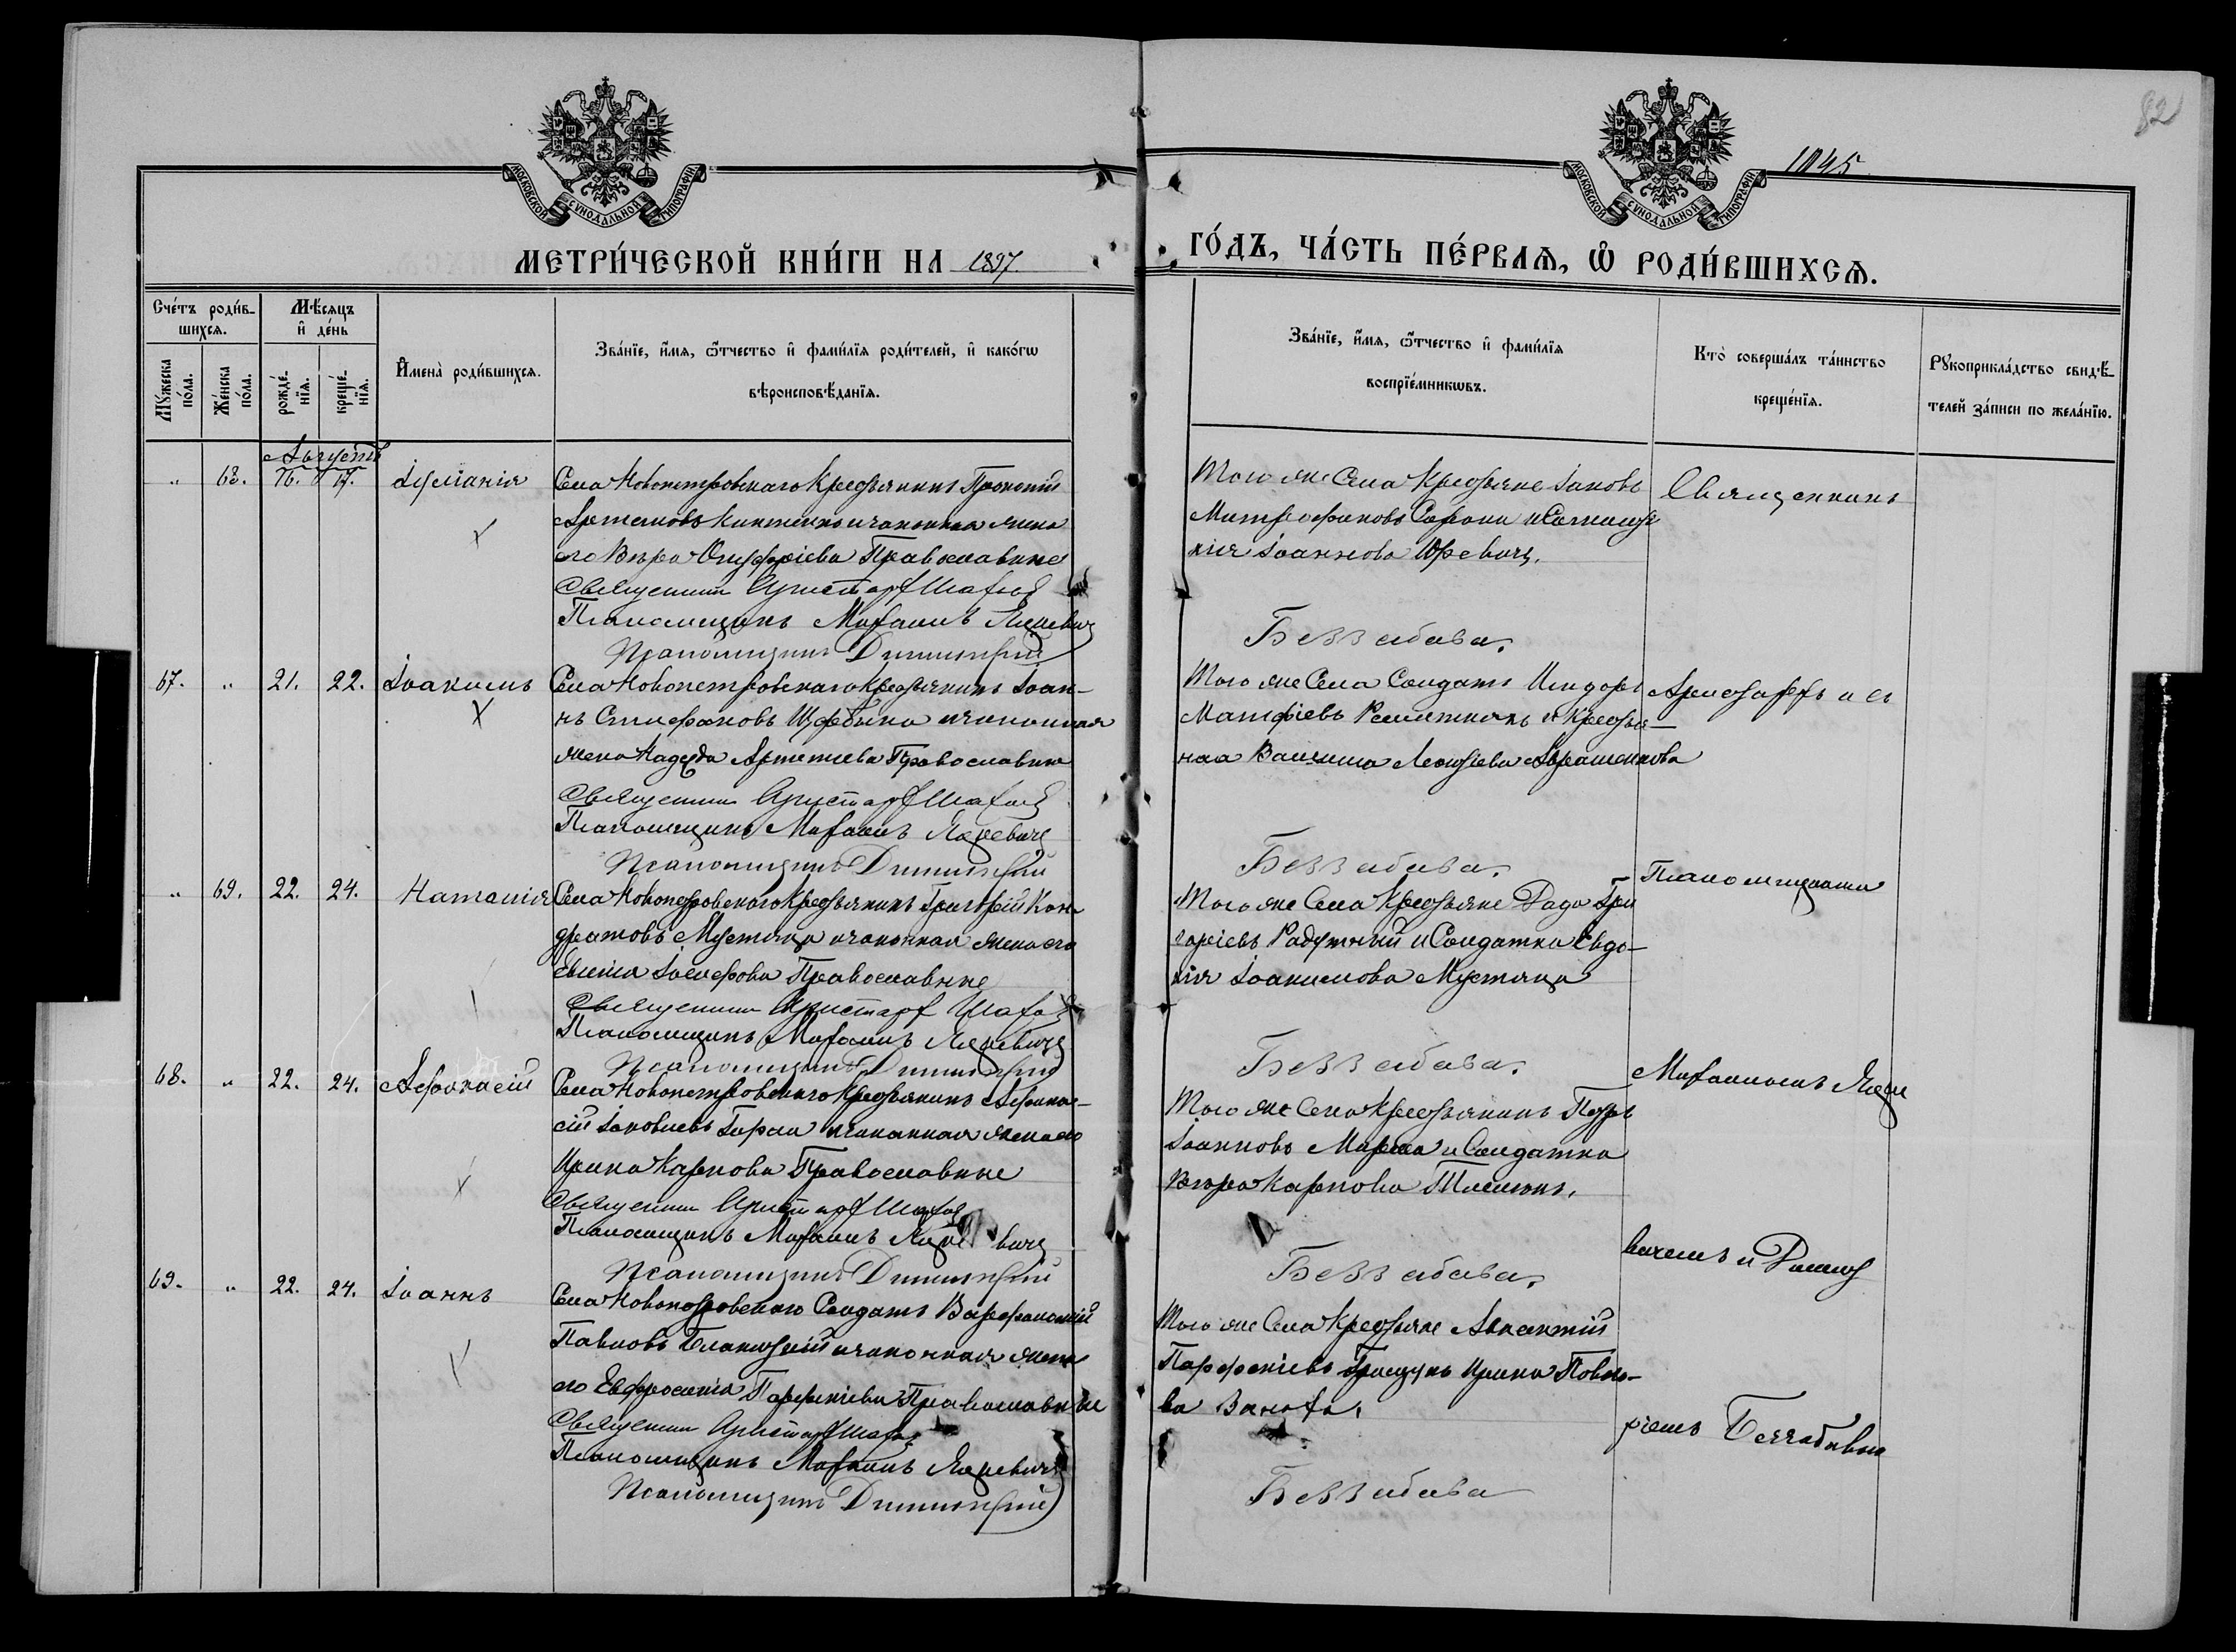 82
1045
МОСКОВСКОЙ СѴНОДАЛЬНОЙ ТИПОГРАФІИ
МОСКОВСКОЙ СѴНОДАЛЬНОЙ ТИПОГРАФІИ
МЕТРИ́ЧЕСКОЙ КНИ́ГИ НА 1897.
ГО́ДЪ, ЧА́СТЬ ПЕ́РВАѦ, Ѽ РОДИ́ВШИХСѦ.
Сче́тъ роди́в-
шихсѧ.
Мꙋ́жеска по́ла.
Же́нска по́ла.
Мѣ́сѧцъ
и҆ де́нь
рожде́-
нїѧ.
креще́-
нїѧ.
И҆мена̀ роди́вшихсѧ.
Зва́нїе, и҆́мѧ, ѻ҆́тчество и҆ фами́лїѧ роди́телей, и҆ како́гѡ
вѣроисповѣ́данїѧ.
Зва́нїе, и҆́мѧ, ѻ҆́тчество и҆ фами́лїѧ
воспрїе́мникѡвъ.
Кто̀ соверша́лъ та́инство
креще́нїѧ.
Рꙋкоприкла́дство свидѣ́-
телей за́писи по жела́нїю.
Августъ
„ 68. 16. 17. Іуліанія
Села Новопетровскаго Крестьянинъ Прокопій
Артемовъ и законная жена
его Вѣра Онуфріева Православные
Священникъ Аристархъ
Псаломщикъ Михаилъ Яцкевичъ
Псаломщикъ Димитрій
Того же Села Крестьяне Іаковъ
Митрофановъ и
кія Іоаннова Юревичъ.
Беззабава.
Священникъ
67. „ 21. 22. Іоакимъ
Села Новопетровскаго Крестьянинъ Іоан-
нъ Стефановъ Щербина и законная
жена Надежда Артемьева Православные
Священникъ Аристархъ
Псаломщикъ Михаилъ Яцкевичъ
Псаломщикъ Димитрій
Того же Села Солдатъ Исидоръ
Матфіевъ Решетнякъ и Крестья-
нка Авраменкова
Беззабава.
Аристархъ и съ
„ 69. 22. 24. Наталія
Села Новопетровскаго Крестьянинъ Григорій Кон-
дратовъ Мустяца и законная жена его
Евгенія Іосифова Православные
Священникъ Аристархъ
Псаломщикъ Михаилъ Яцкевичъ
Псаломщикъ Димитрій
Того же Села Крестьяне Гри
горіевъ и Солдатка Евдо-
кія Іоакимова Мустяца
Беззабава.
Псаломщиками
68. „ 22. 24. Афанасій
Села Новопетровскаго Крестьянинъ Афана-
сій Іаковлевъ и законная жена его
Ирина Карпова Православные
Священникъ Аристархъ
Псаломщикъ Михаилъ Яцкевичъ
Псаломщикъ Димитрій
Того же Села Крестьянинъ Петръ
Іоанновъ и Солдатка
Вѣра Карпова
Беззабава.
Михаиломъ Яцке
вичемъ и Димит
69. „ 22. 24. Іоаннъ
Села Новопетровскаго Солдатъ Варфоломій
Павловъ и законная жена
его Евфросинія Парфеніева Православные
Священникъ Аристархъ
Псаломщикъ Михаилъ Яцкевичъ
Псаломщикъ Димитрій
Того же Села Крестьяне
Парфеніевъ Ирина Павло-
ва
Беззабава
ріемъ Беззабавою